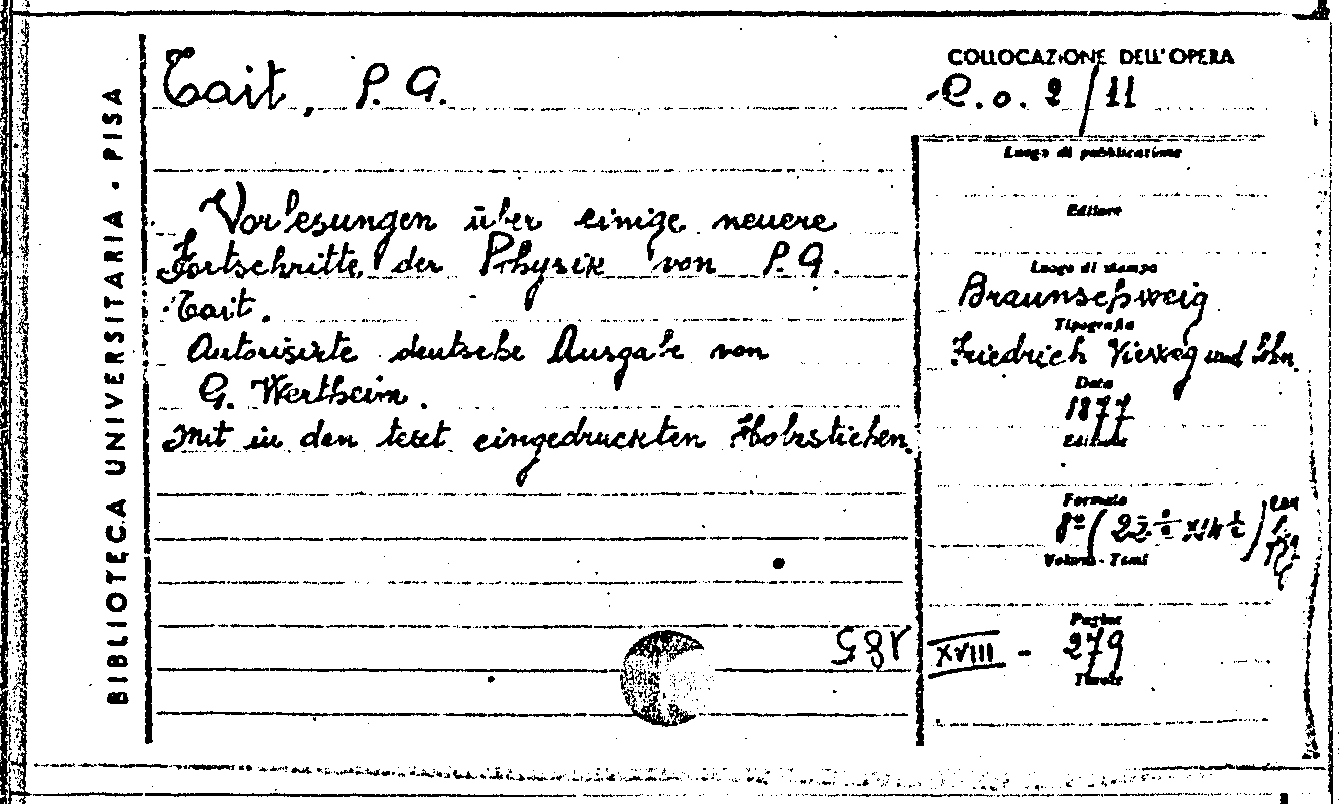 BIBLIOTECA UNIVERSITARIA - PISA
Tait, P. G.
Vorlesungen über einige neuere
Fortschritte der Physik von P. G.
Tait.
Autorisirte deutsche Ausgabe von
G. Wertheim.
Mit in den text eingedruckten Holzstichen.
COLLOCAZIONE DELL'OPERA
C. o. 2/11
Luogo di pubblicazione
Editore
Luogo di stampa
Braunschweig
Tipografia
Friedrich Vieweg und Sohn.
Data
1877
Edizione
Formato
8º
Volumi - Tomi
Pagine
XVIII - 279
Tavole